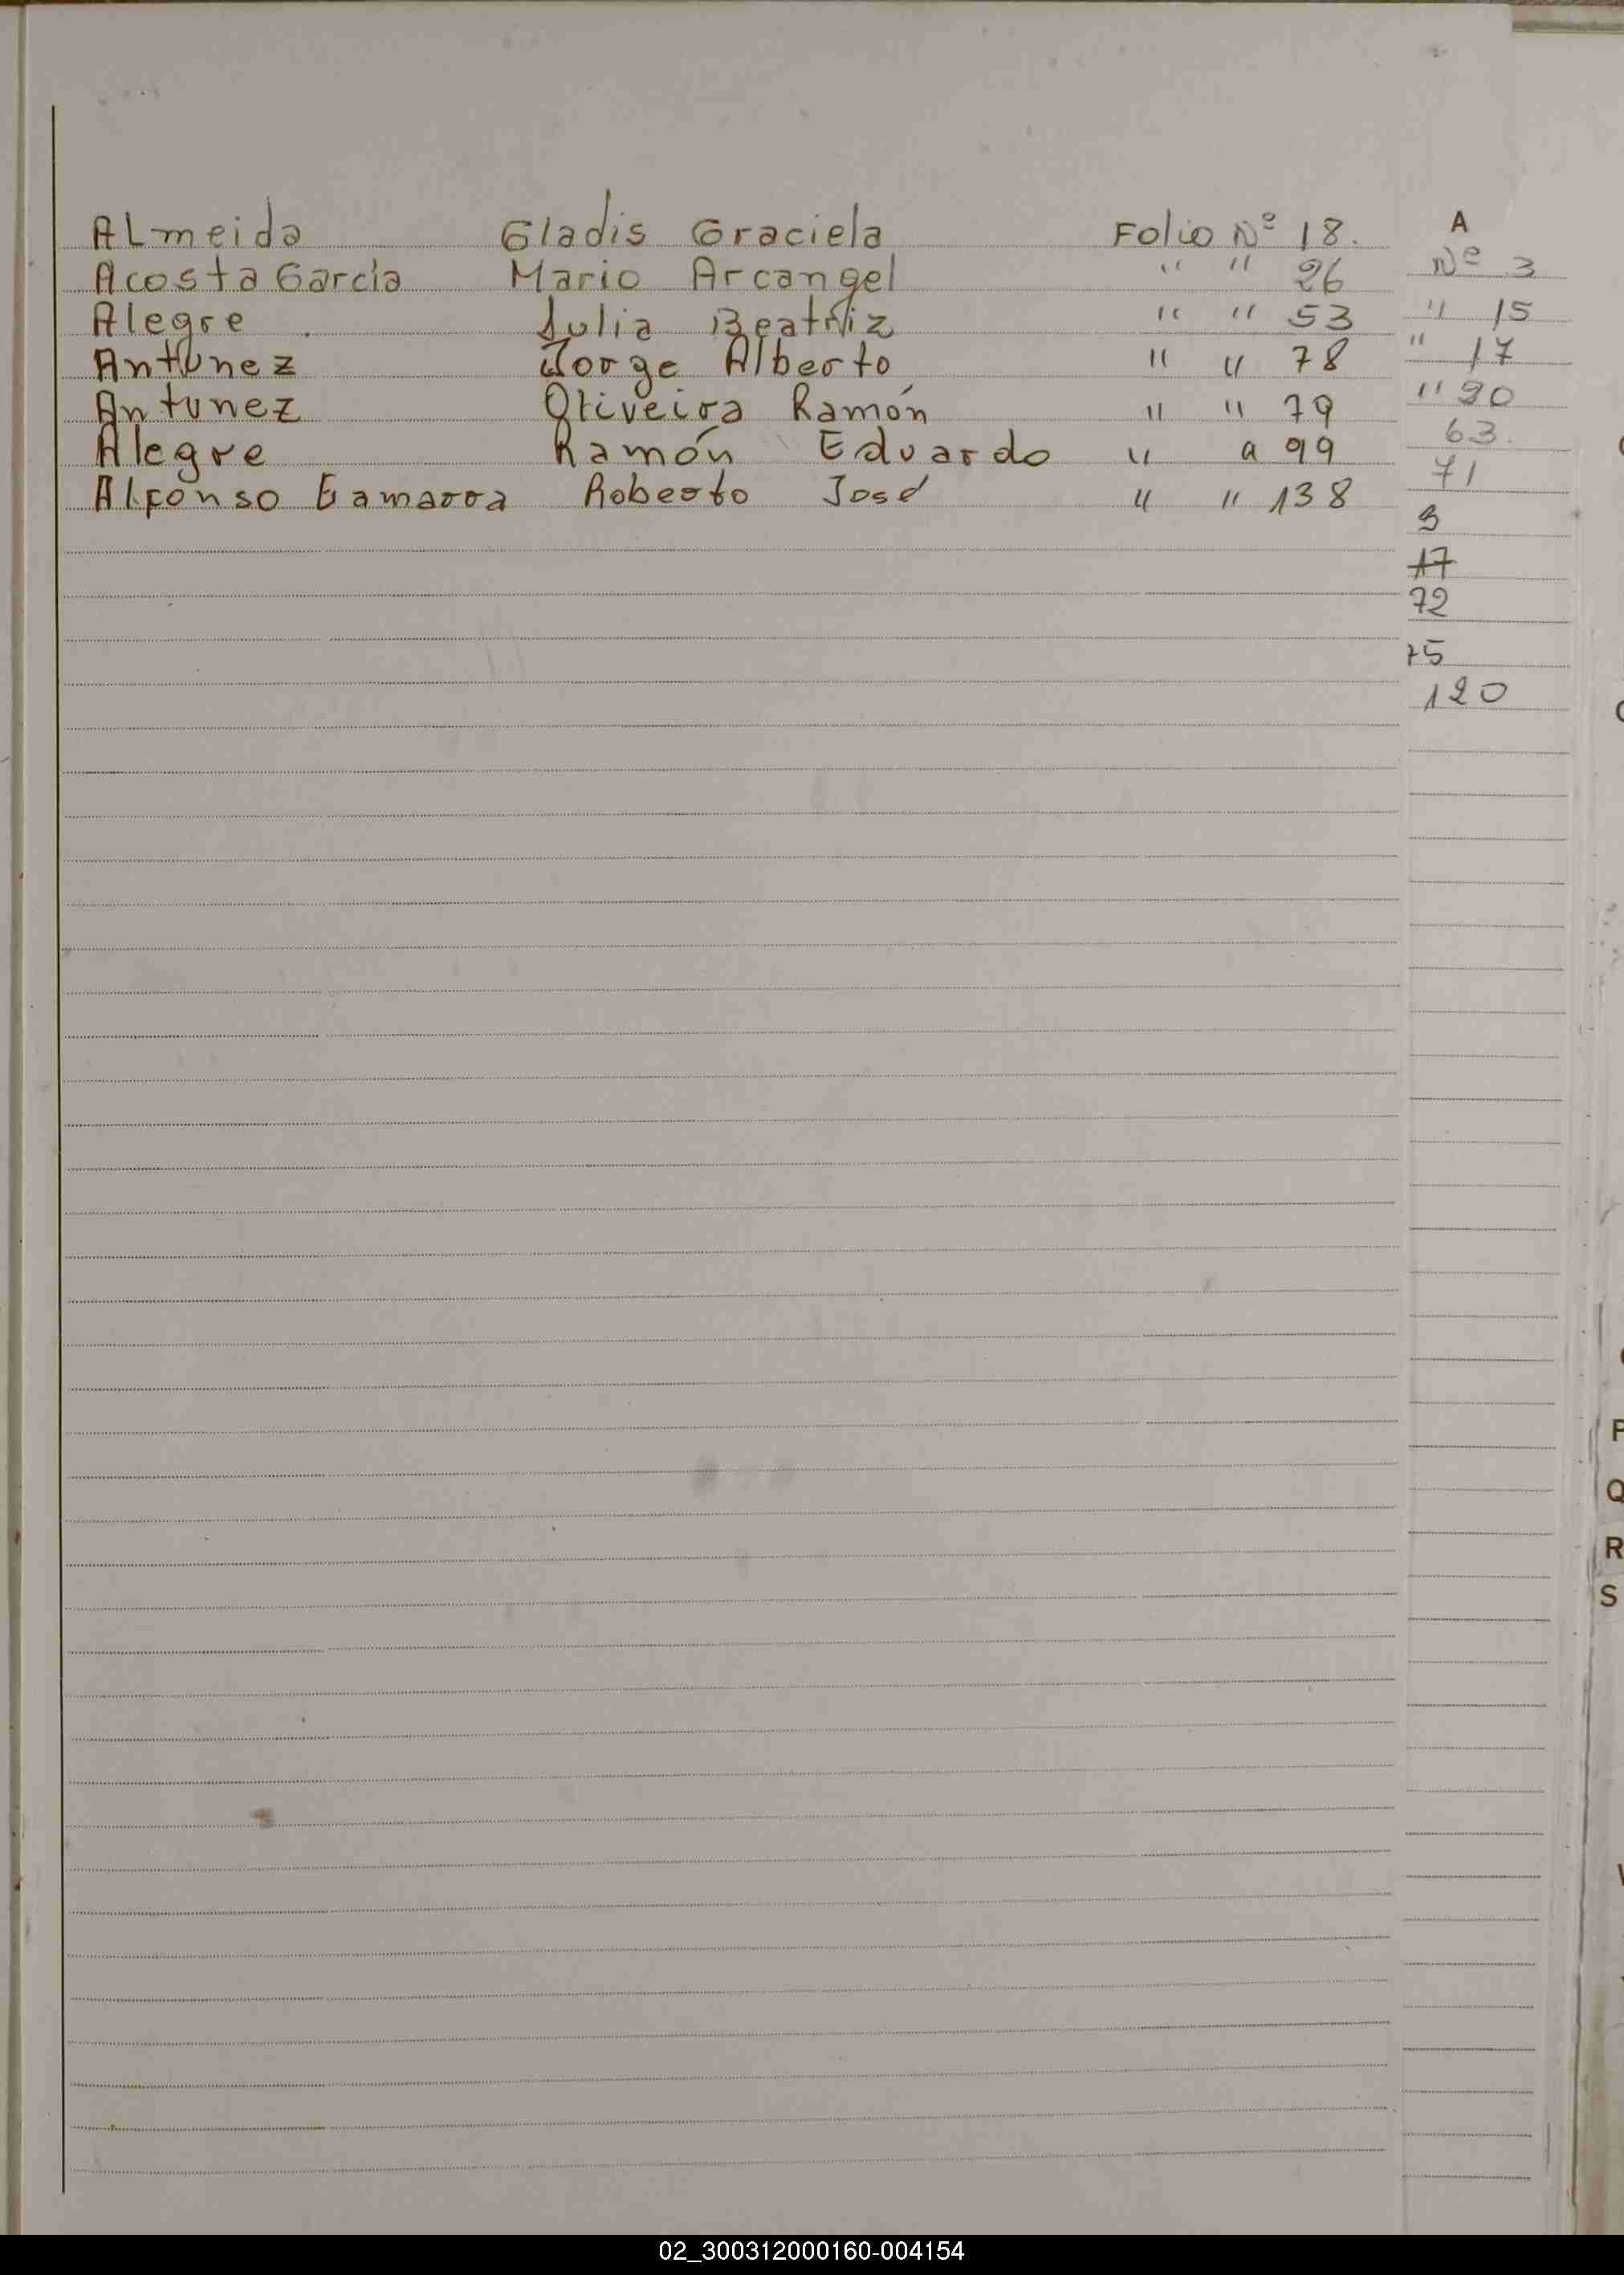 A
Almeida Gladis Graciela Folio Nº 18.
Acosta Garcia Mario Arcangel " " 26
Alegre Julia Beatriz " " 53
Antunez Jorge Alberto " " 78
Antunez Oliveira Ramón " " 79
Alegre Ramón Eduardo " " 99
Alfonso Gamarra Roberto José " " 138
Nº 3
" 15
" 17
63.
71
17
72
120
P
Q
R
S
02_300312000160-004154